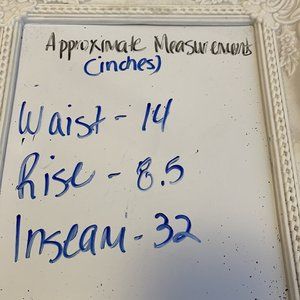 Approximate Measurements
(inches)
Waist - 14
Rise - 8.5
Inseam - 32